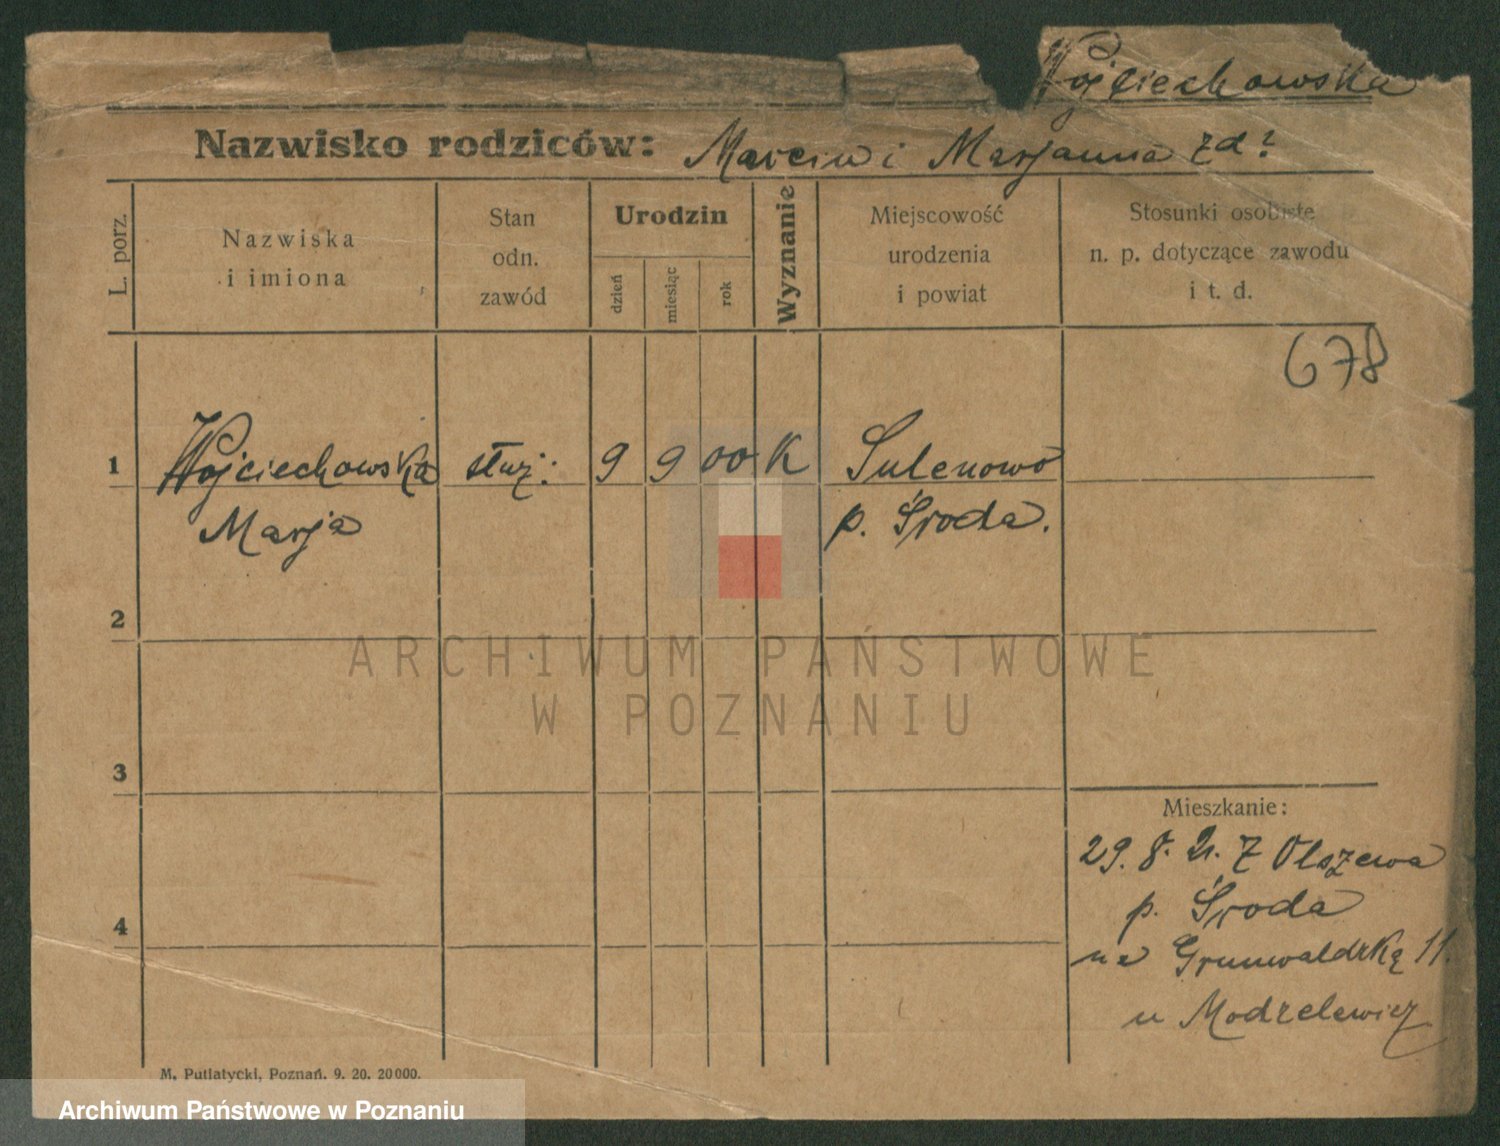 Wojciechowska
Nazwisko rodziców: Marcin i Marjanna zd?
L. porz.
Nazwiska
i imiona
Stan
odn.
zawód
Urodzin
dzień
miesiąc
rok
Wyznanie
Miejscowość
urodzenia
i powiat
Stosunki osobiste
n. p. dotyczące zawodu
i t. d.
678
1 Wojciechowska służ: 9 9 00 K Sulenowo
Marja p. Środa.
2
ARCHIWUM PAŃSTWOWE
W POZNANIU
3
Mieszkanie:
29. 8. 21. Z Olszewa
p. Środa
4
na Grunwaldzką 11.
u Modzelewicz
M. Putiatycki, Poznań. 9. 20. 20000.
Archiwum Państwowe w Poznaniu